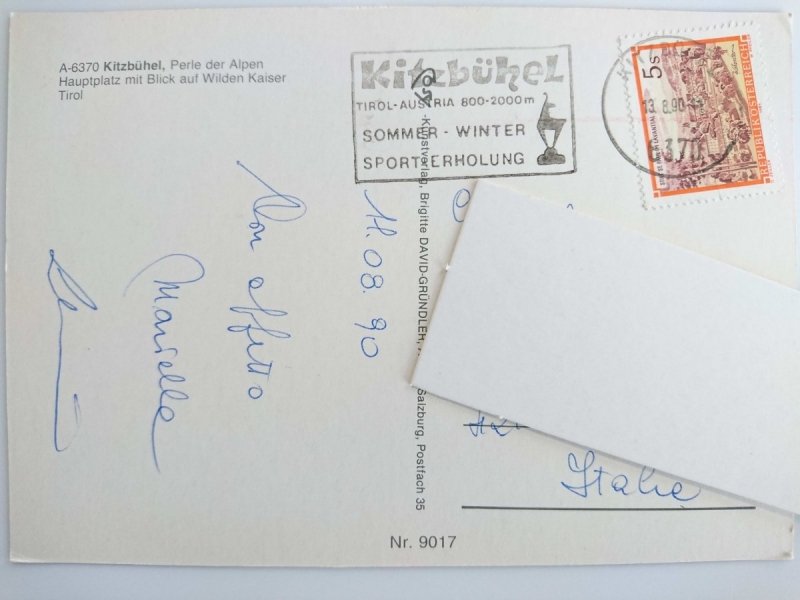 A-6370 Kitzbühel, Perle der Alpen
Hauptplatz mit Blick auf Wilden Kaiser
Tirol
Kitzbühel
TIROL-AUSTRIA 800-2000m
SOMMER - WINTER
SPORT-ERHOLUNG
5s
REPUBLIK ÖSTERREICH
13.8.90
6370
11.08.90
Con affetto
Marisella
-Kunstverlag, Brigitte DAVID-GRÜNDLER, Salzburg, Postfach 35
Italia
Nr. 9017